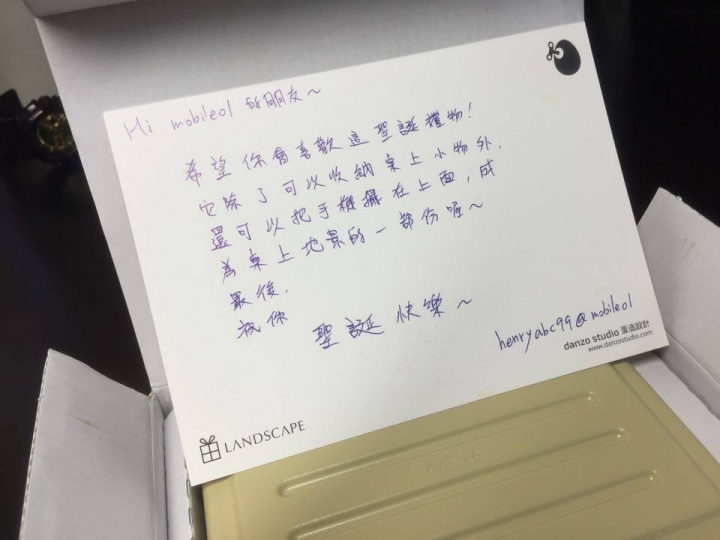 Hi mobile01 的朋友～
希望你會喜歡這聖誕禮物！
它除了可以收納桌上小物外，
還可以把手機擺在上面，成
為桌上地景的一部份喔～
最後，
祝你
聖誕快樂～
henryabc99@mobile01
danzo studio 蛋造設計
www.danzostudio.com
LANDSCAPE